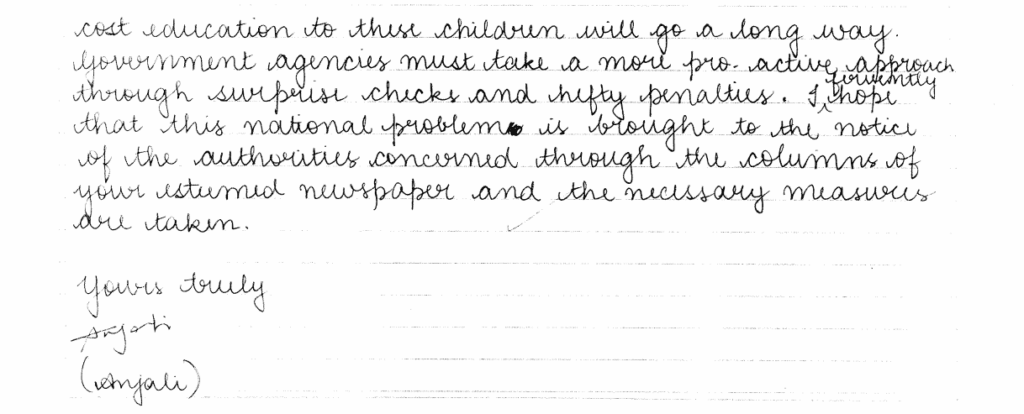 cost education to these children will go a long way.
Government agencies must take a more pro-active approach
through surprise checks and hefty penalties. I fervently hope
that this national problem is brought to the notice
of the authorities concerned through the columns of
your esteemed newspaper and the necessary measures
are taken.
Yours truly
Anjali
(Anjali)